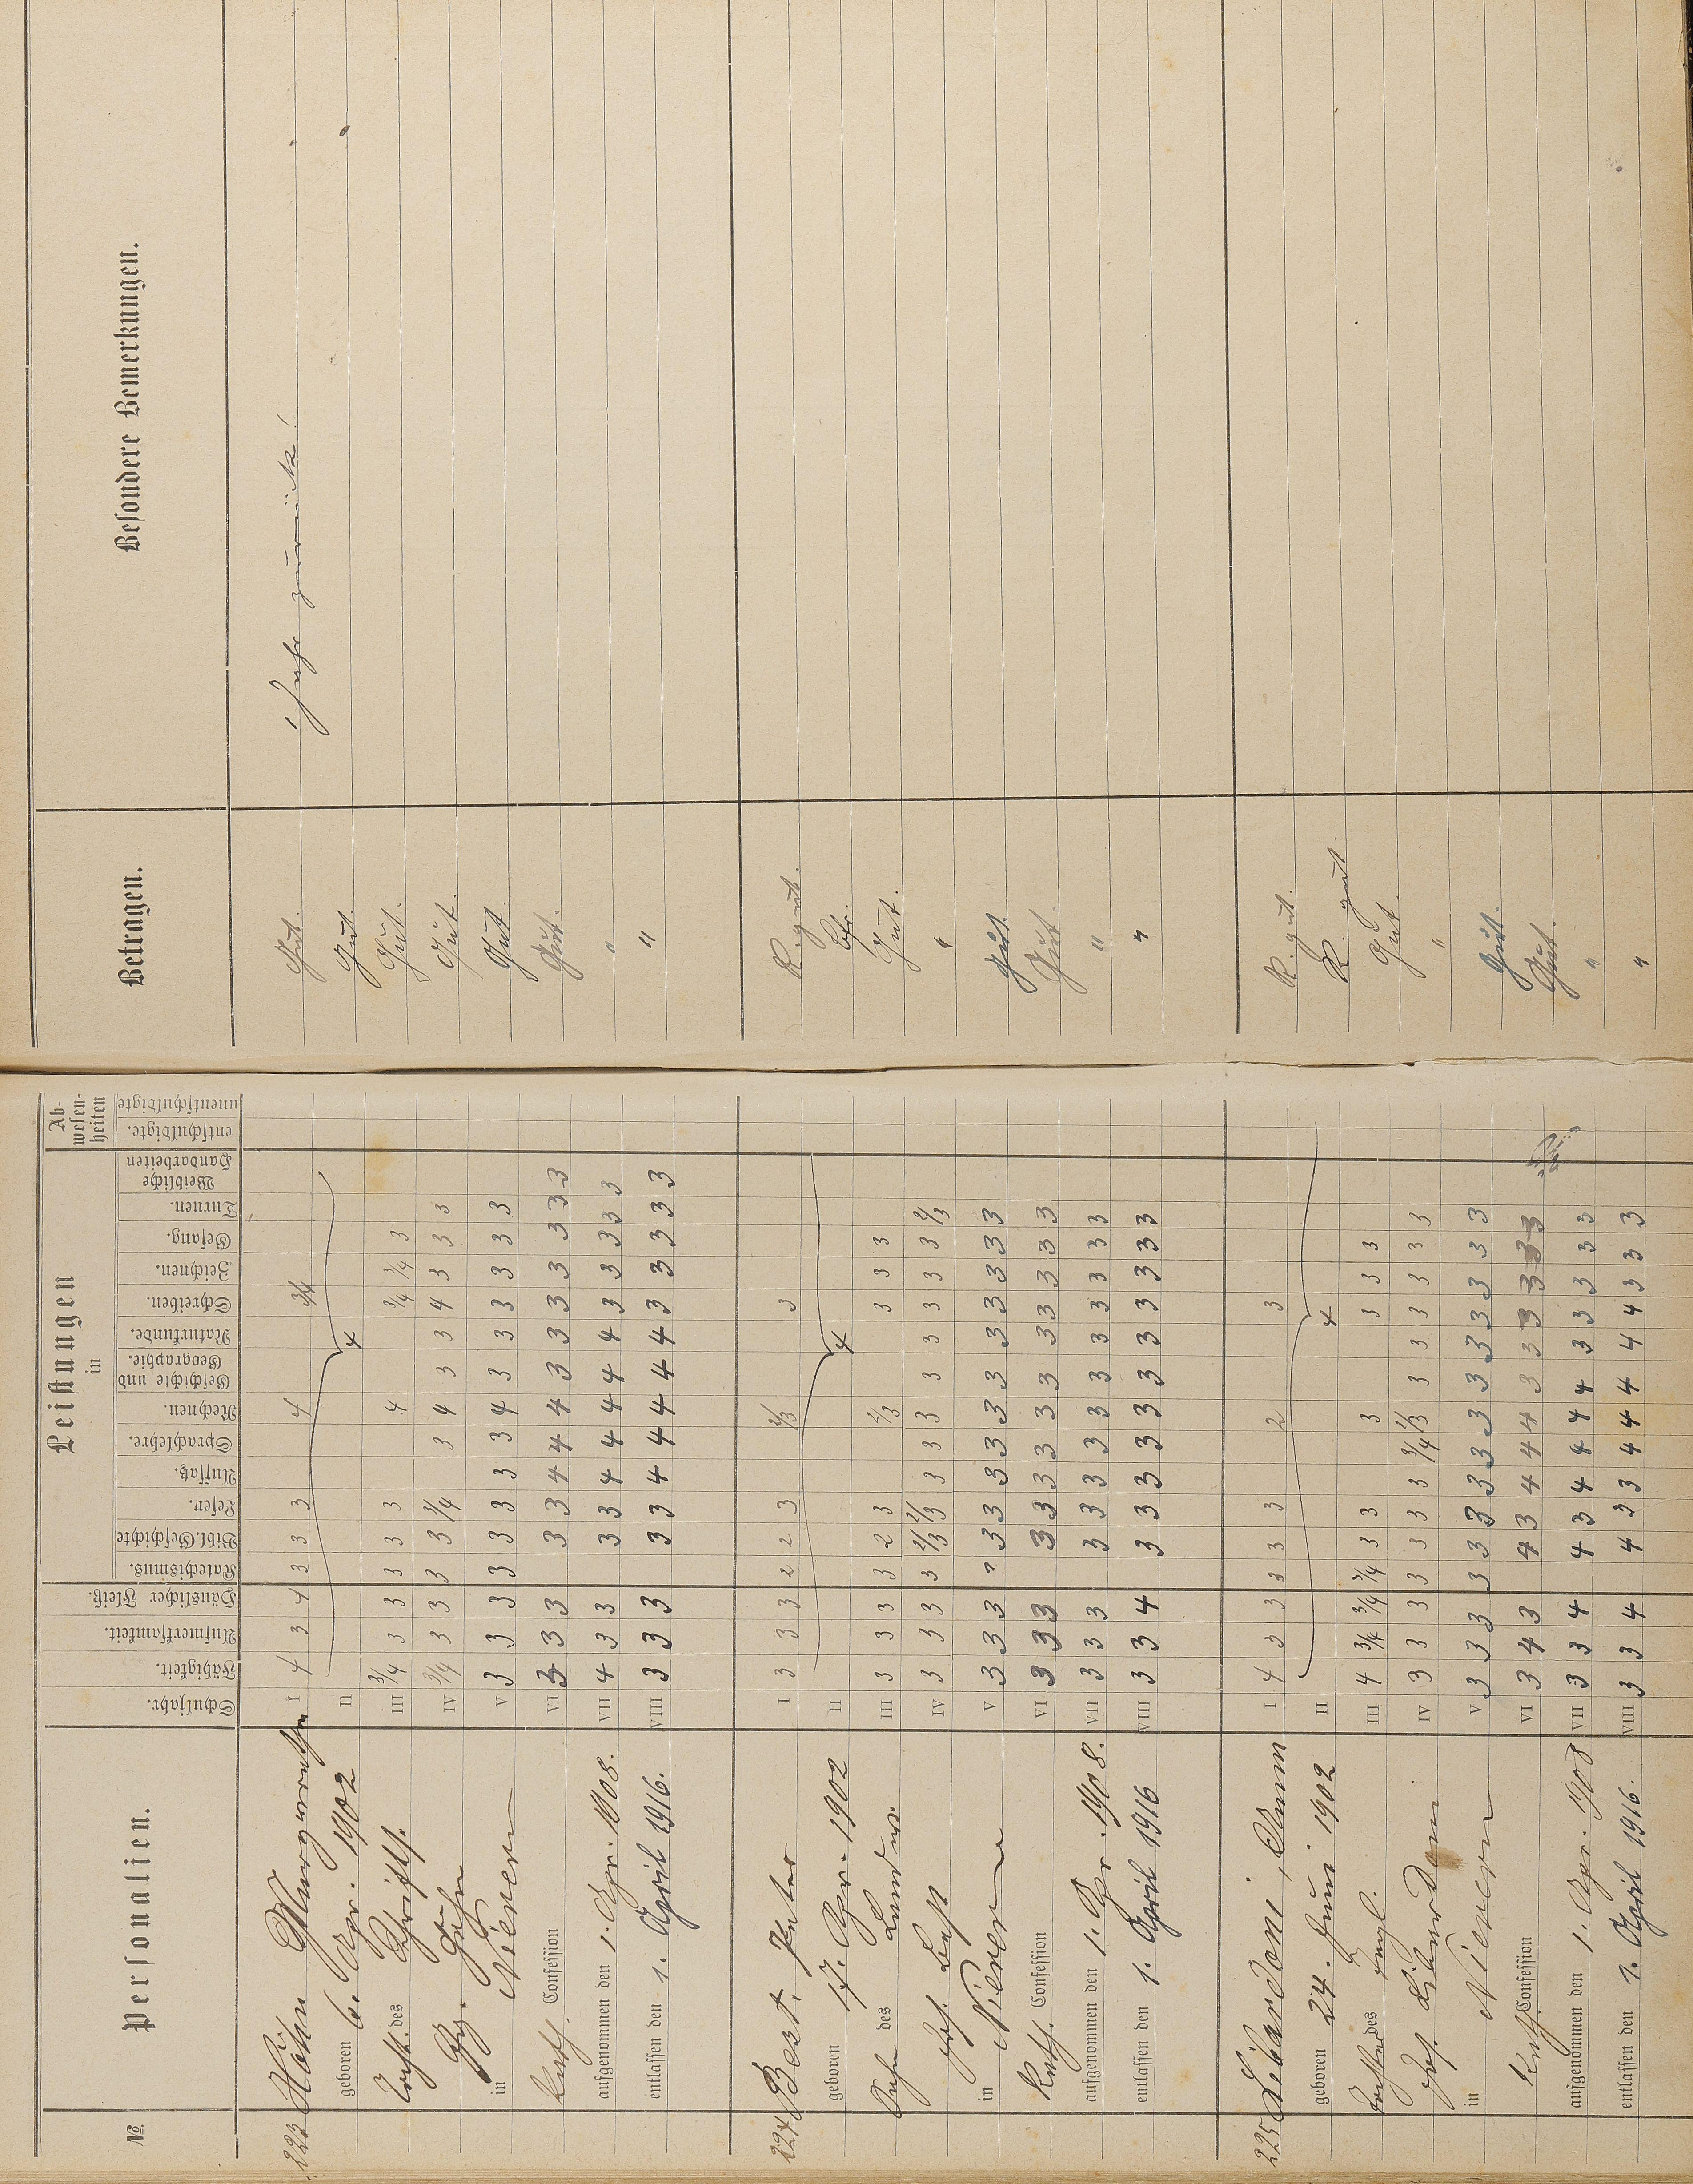 №.
Personalien.
Schuljahr.
Fähigkeit.
Aufmerksamkeit.
Häuslicher Fleiß.
Leistungen
in
Katechismus.
Bibl. Geschichte
Lesen.
Aufsatz.
Sprachlehre.
Rechnen.
Geschichte und
Geographie.
Naturkunde.
Schreiben.
Zeichnen.
Gesang.
Turnen.
Weibliche
Handarbeiten
Ab-
wesen-
heiten
entschuldigte.
unentschuldigte
Betragen.
Besondere Bemerkungen.
223 Höhn Margarethe I 4 3 4 3 3 3 4 3/4 Gut. sehr zurück!
geboren 6. Apr. 1902 II 4 Gut.
Tocht. des III 3/4 3 3 3 3 3 4 3/4 3/4 3 Gut.
IV 3/4 3 3 3 3 3/4 3 4 3 3 4 3 3 3 Gut.
in Nievern V 3 3 3 3 3 3 3 3 4 3 3 3 3 3 3 Gut.
Kath. Confession VI 3 3 3 3 3 4 4 4 3 3 3 3 3 3 3 Gut.
aufgenommen den 1. Apr. 1908. VII 4 3 3 3 3 4 4 4 4 4 3 3 3 3 3 "
entlassen den 1. April 1916. VIII 3 3 3 3 3 4 4 4 4 4 3 3 3 3 3 "
224 Best, Peter I 3 3 3 2 2 3 2/3 3 R. gut.
geboren 17. Apr. 1902 II 4
Sohn des III 3 3 3 3 2 3 2/3 3 3 3 Gut.
Jos. Best IV 3 3 3 3 2/3 2/3 3 3 3 3 3 3 3 3 2/3 "
in Nievern V 3 3 3 3 3 3 3 3 3 3 3 3 3 3 Gut.
Kath. Confession VI 3 3 3 3 3 3 3 3 3 3 3 3 3 3 Gut.
aufgenommen den 1. Apr. 1908. VII 3 3 3 3 3 3 3 3 3 3 3 3 3 3 "
entlassen den 1. April 1916 VIII 3 3 4 3 3 3 3 3 3 3 3 3 3 3 "
225 Libardoni, Anna I 4 3 3 3 3 3 2 3 R. gut.
geboren 24. Juni 1902 II 4 R. gut
Tochter des III 4 3/4 3/4 3/4 3 3 3 3 3 3 Gut.
Jos. Libardoni IV 3 3 3 3 3 3 3 3/4 2/3 3 3 3 3 3 3 "
in Nievern V 3 3 3 3 3 3 3 3 3 3 3 3 3 3 3 Gut.
Kath. Confession VI 3 4 3 4 3 4 4 4 3 3 3 3 3 3 Gut.
aufgenommen den 1. Apr. 1908 VII 3 3 4 4 3 4 4 4 4 3 3 3 3 3 "
entlassen den 1. April 1916. VIII 3 3 4 4 3 3 4 4 4 4 4 3 3 3 "